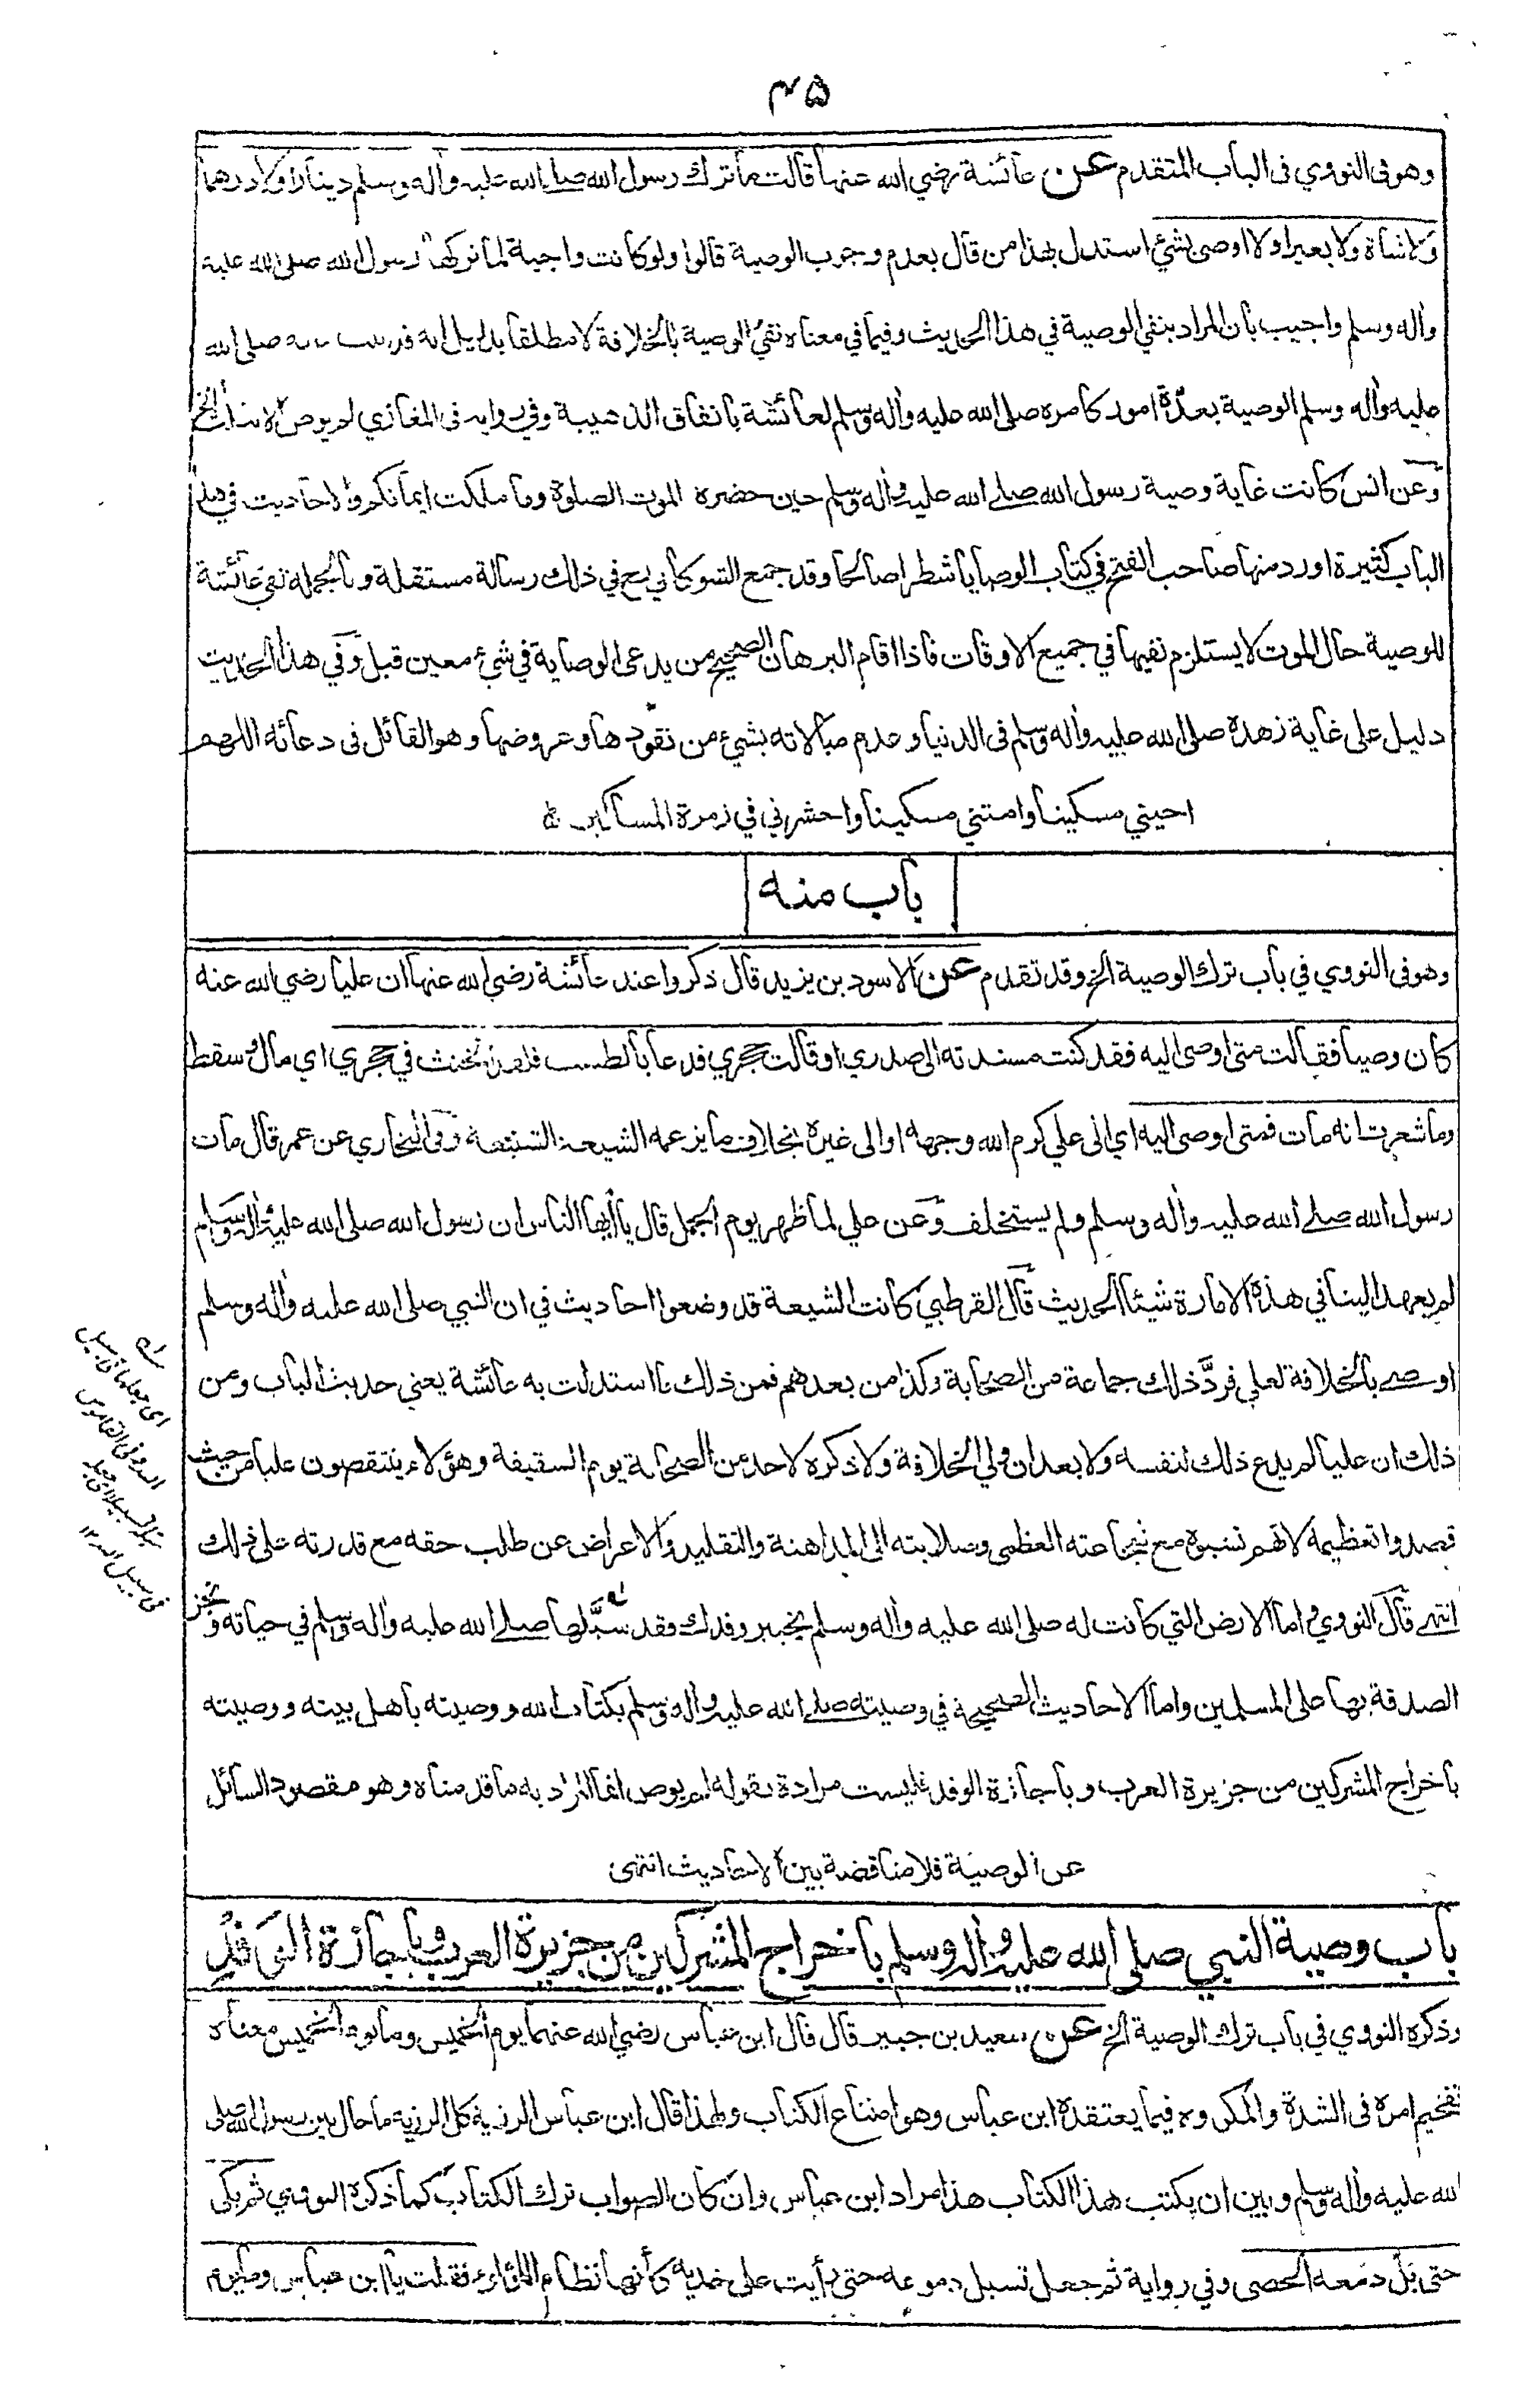 ٤٥
وهو فى النووي فى الباب المتقدم عن عائشة رضي الله عنها قالت ما ترك رسول الله صلى الله عليه واٰله وسلم دينارا ولا درهما
ولا شاة ولا بعيرا ولا اوصى بشئ استدل بهذا من قال بعدم وجوب الوصية قالوا ولو كانت واجبة لما تركها رسول الله صلى الله عليه
واٰله وسلم واجيب بان المراد بنفي الوصية في هذا الحديث وفيما في معناه نفي الوصية بالخلافة لا مطلقا بدليل انه قد صلى الله
عليه واٰله وسلم الوصية بعدّة امور كامره صلى الله عليه واٰله وسلم لعائشة بانفاق الذهيبة وفي رواية فى المغازي لم يوص الا بثلث الخ
وعن انس كانت غاية وصية رسول الله صلى الله عليه واٰله وسلم حين حضره الموت الصلوة وما ملكت ايمانكم والاحاديث في هذا
الباب كثيرة اورد منها صاحب الفتح في كتاب الوصايا شطرا صالحا وقد جمع الشوكاني رح في ذلك رسالة مستقلة وبالجملة نفي عائشة
للوصية حال الموت لا يستلزم نفيها في جميع الاوقات فاذا اقام البرهان الصحيح من يدعى الوصاية في شئ معين قبل وفي هذا الحديث
دليل على غاية زهده صلى الله عليه واٰله وسلم فى الدنيا وعدم مبالاته بشئ من نقودها وعروضها وهو القائل فى دعائه اللهم
احيني مسكينا وامتني مسكينا واحشرني في زمرة المساكين
باب منه
وهو فى النووي في باب ترك الوصية الخ وقد تقدم عن الاسود بن يزيد قال ذكروا عند عائشة رضي الله عنها ان عليا رضي الله عنه
كان وصيا فقالت متى اوصى اليه فقد كنت مسندته الى صدري او قالت حجري فدعا بالطست فلقد انخنث في حجري اي مال وسقط
وما شعرت انه مات فمتى اوصى اليه اي الى علي كرم الله وجهه او الى غيره بخلاف ما يزعمه الشيعة الشنيعة وفى البخاري عن عمر قال مات
رسول الله صلى الله عليه واٰله وسلم ولم يستخلف وعن علي لما ظهر يوم الجمل قال يا ايها الناس ان رسول الله صلى الله عليه واٰله وسلم
لم يعهد الينا في هذه الامارة شيئا الحديث قال القرطبي كانت الشيعة قد وضعوا احاديث في ان النبي صلى الله عليه واٰله وسلم
اوصى بالخلافة لعلي فردَّ ذلك جماعة من الصحابة وكذا من بعدهم فمن ذلك ما استدلت به عائشة يعني حديث الباب ومن
ذلك ان عليا لم يدع ذلك لنفسه ولا بعد ان ولي الخلافة ولا ذكره لاحد من الصحابة يوم السقيفة وهؤلاء ينتقصون عليا من حيث
قصدوا تعظيمه لانهم نسبوه مع شجاعته العظمى وصلابته الى المداهنة والتقليد والاعراض عن طلب حقه مع قدرته على ذلك
انتهى قال النووي واما الارض التي كانت له صلى الله عليه واٰله وسلم بخيبر وفدك فقد سبَّلها صلى الله عليه واٰله وسلم في حياته ونجز
الصدقة بها على المسلمين واما الاحاديث الصحيحة في وصيته صلى الله عليه واٰله وسلم بكتاب الله ووصيته باهل بيته ووصيته
باخراج المشركين من جزيرة العرب وباجازة الوفد فليست مرادة بقوله لم يوص انما المراد به ما قدمناه وهو مقصود السائل
عن الوصية فلا مناقضة بين الاحاديث انتهى
باب وصية النبي صلى الله عليه واٰله وسلم باخراج المشركين من جزيرة العرب وباجازة الوفد
وذكره النووي في باب ترك الوصية الخ عن سعيد بن جبير قال قال ابن عباس رضي الله عنهما يوم الخميس وما يوم الخميس معناه
تفخيم امره فى الشدة والمكروه فيما يعتقده ابن عباس وهو امتناع الكتاب ولهذا قال ابن عباس الرزية كل الرزية ما حال بين رسول الله صلى
الله عليه واٰله وسلم وبين ان يكتب هذا الكتاب هذا مراد ابن عباس وان كان الصواب ترك الكتاب كما ذكره النووي ثم بكى
حتى بلّ دمعه الحصى وفي رواية ثم جعل تسيل دموعه حتى رأيت على خديه كأنها نظام اللؤلؤ فقلت يا ابن عباس وما يوم
اى جعلها في سبيل
الله وفى القاموس
سبّله تسبيلا اى جعله
فى سبيل الله ١٢